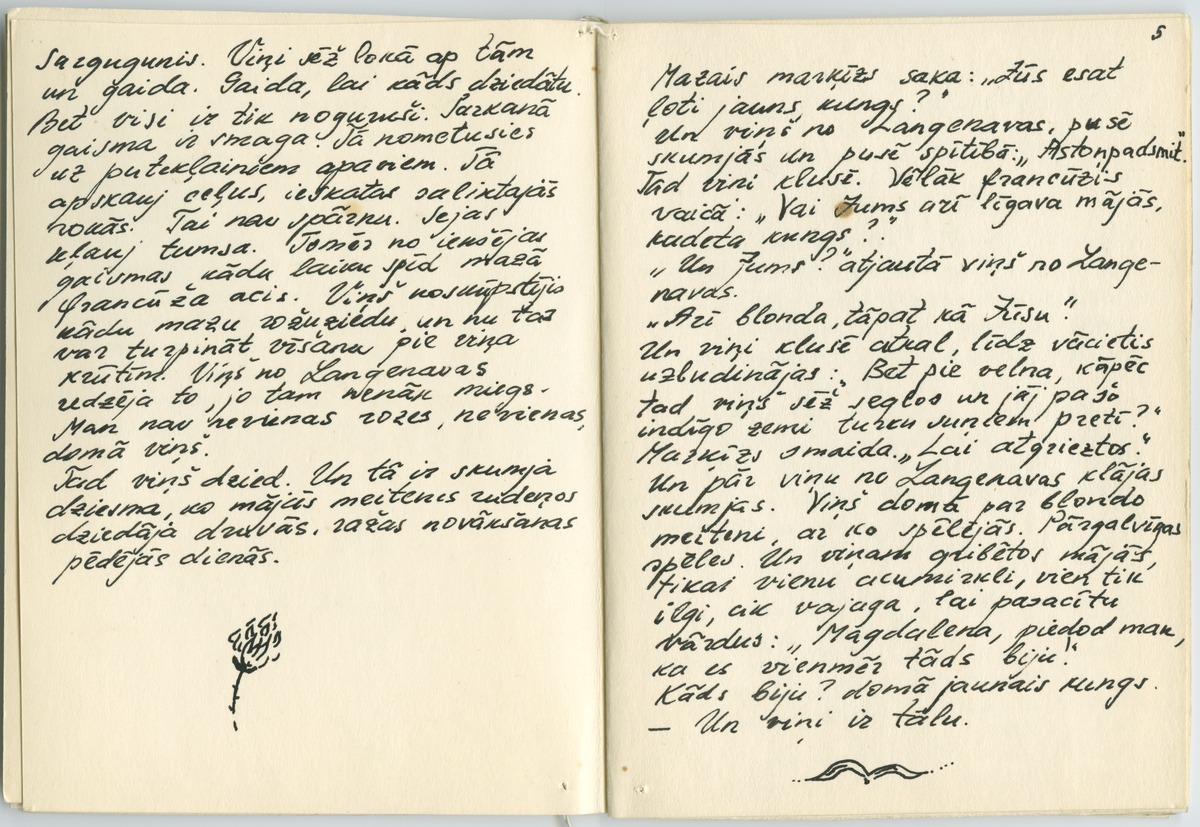 Sargugunis. Viņi sēž lokā ap tām
un gaida. Gaida, lai kāds dziedātu.
Bet visi ir tik noguruši. Sarkanā
gaisma ir smaga. Tā nometusies
uz putekļainiem apaviem. Tā
apskauj ceļus, ieskatas saliktajās
rokās. Tai nav spārnu. Sejas
kļauj tumsa. Tomēr no iekšējas
gaismas kādu laiku spīd mazā
franču̅ža acis. Viņš noskūpstījis
kādu mazu rožuziedu, un nu tas
var turpināt vīšanu pie viņa
krūtīm. Viņš no Langenavas
redzēja to, jo tam nenāk miegs.
Man nav nevienas rozes, nevienas,
domā viņš.
Tad viņš dzied. Un tā ir skumja
dziesma, ko mājās meitenes rudeņos
dziedāja druvās, ražas novākšanas
pēdējās dienās.
5
Mazais marķīzs saka: „Jūs esat
ļoti jauns, kungs?"
Un viņš no Langenavas, pusē
skumjās un pusē spītībā: „Astoņpadsmit."
Tad viņi klusē. Vēlāk francūzis
vaicā: „Vai Jums arī līgava mājās,
kadeta kungs?"
„Un Jums?" atjautā viņš no Lange-
navas.
„Arī blonda, tāpat kā Jūsu."
Un viņi klusē atkal, līdz vācietis
uzbudinājas: „Bet pie velna, kāpēc
tad viņš sēž seglos un jāj pa šo
indīgo zemi turku suņiem pretī?"
Marķīzs smaida. „Lai atgrieztos."
Un pār viņu no Langenavas klājas
skumjas. Viņš domā par blondo
meiteni, ar ko spēlējās. Pārgalvīgas
spēles. Un viņam gribētos mājās,
tikai vienu acumirkli, vien tik
ilgi, cik vajaga, lai pasacītu
vārdus: „Magdalena, piedod man,
ka es vienmēr tāds biju."
Kāds biju? domā jaunais kungs.
— Un viņi ir tālu.